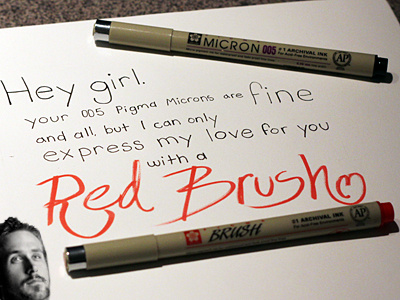 MICRON 005 #1 ARCHIVAL INK
AP
Hey girl.
your 005 Pigma Microns are fine
and all, but I can only
express my love for you
with a
Red Brush
BRUSH #1 ARCHIVAL INK
AP